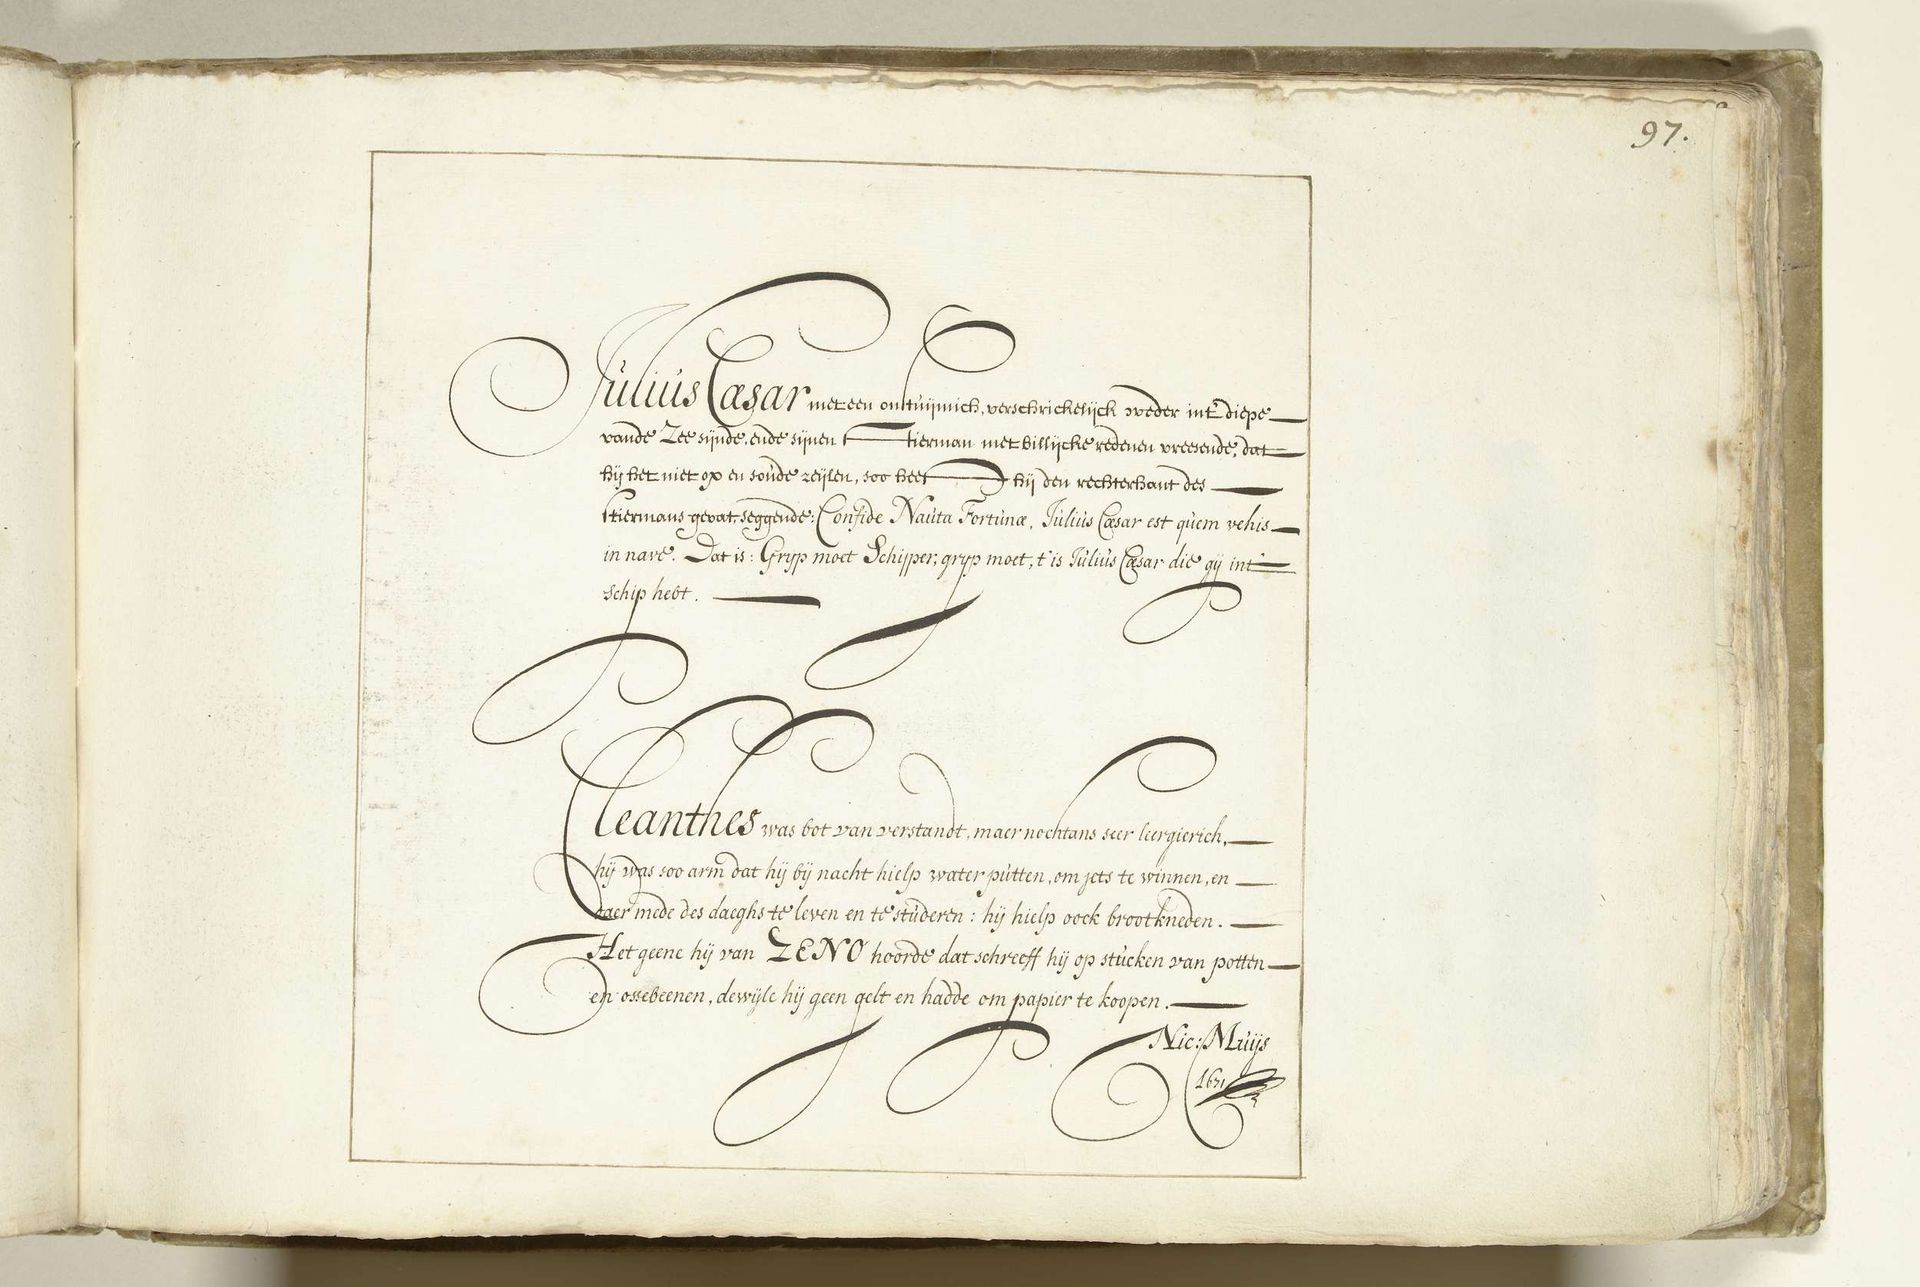 97.
Julius Cæsar met een onstuijmich, verschrickelijck weder int diepe
vande Zee sijnde, ende sijnen Stierman met billijcke redenen vreesende, dat
hij het niet op en soude zeijlen, soo heeft hij den rechterhant des
Stiermans gevat, seggende: Confide Nauta Fortunæ, Julius Cæsar est quem vehis
in nave. Dat is: Gryp moet Schipper, gryp moet, t'is Julius Cæsar die gij int
schip hebt.
Cleanthes was bot van verstandt, maer nochtans seer leergierich,
hij was soo arm dat hij bij nacht hielp water putten, om jets te winnen, en
daer mede des daeghs te leven en te studeren: hij hielp oock broot kneden.
Het geene hij van ZENO hoorde dat schreeff hij op stucken van potten
en ossebeenen, dewijle hij geen gelt en hadde om papier te koopen.
Nic: Muijs